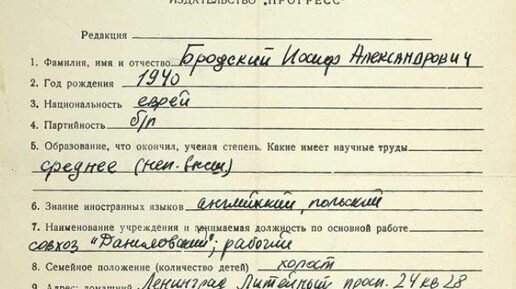 ИЗДАТЕЛЬСТВО „ПРОГРЕСС"
Редакция
1. Фамилия, имя и отчество Бродский Иосиф Александрович
2. Год рождения 1940
3. Национальность еврей
4. Партийность б/п
5. Образование, что окончил, ученая степень. Какие имеет научные труды
среднее (неп. высш)
6. Знание иностранных языков английский, польский
7. Наименование учреждения и занимаемая должность по основной работе
совхоз "Даниловский"; рабочий
8. Семейное положение (количество детей) холост
9. Адрес: домашний Ленинград Литейный просп. 24 кв 28